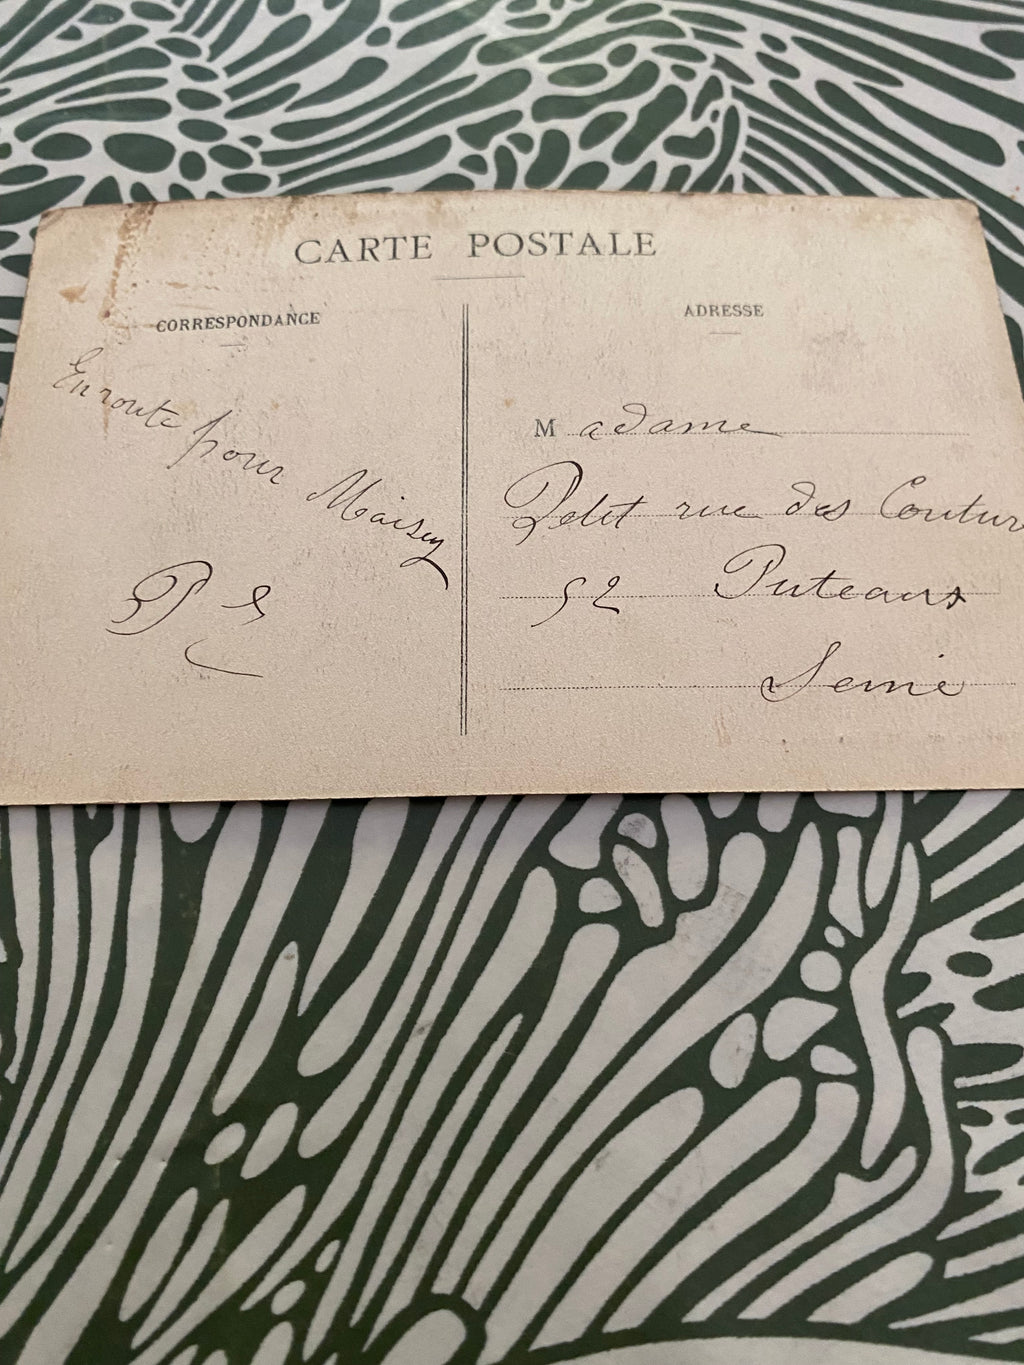 CARTE POSTALE
CORRESPONDANCE
En route
pour Maisy
P
ADRESSE
Madame
Petit rue des
52 Puteaux
Seine